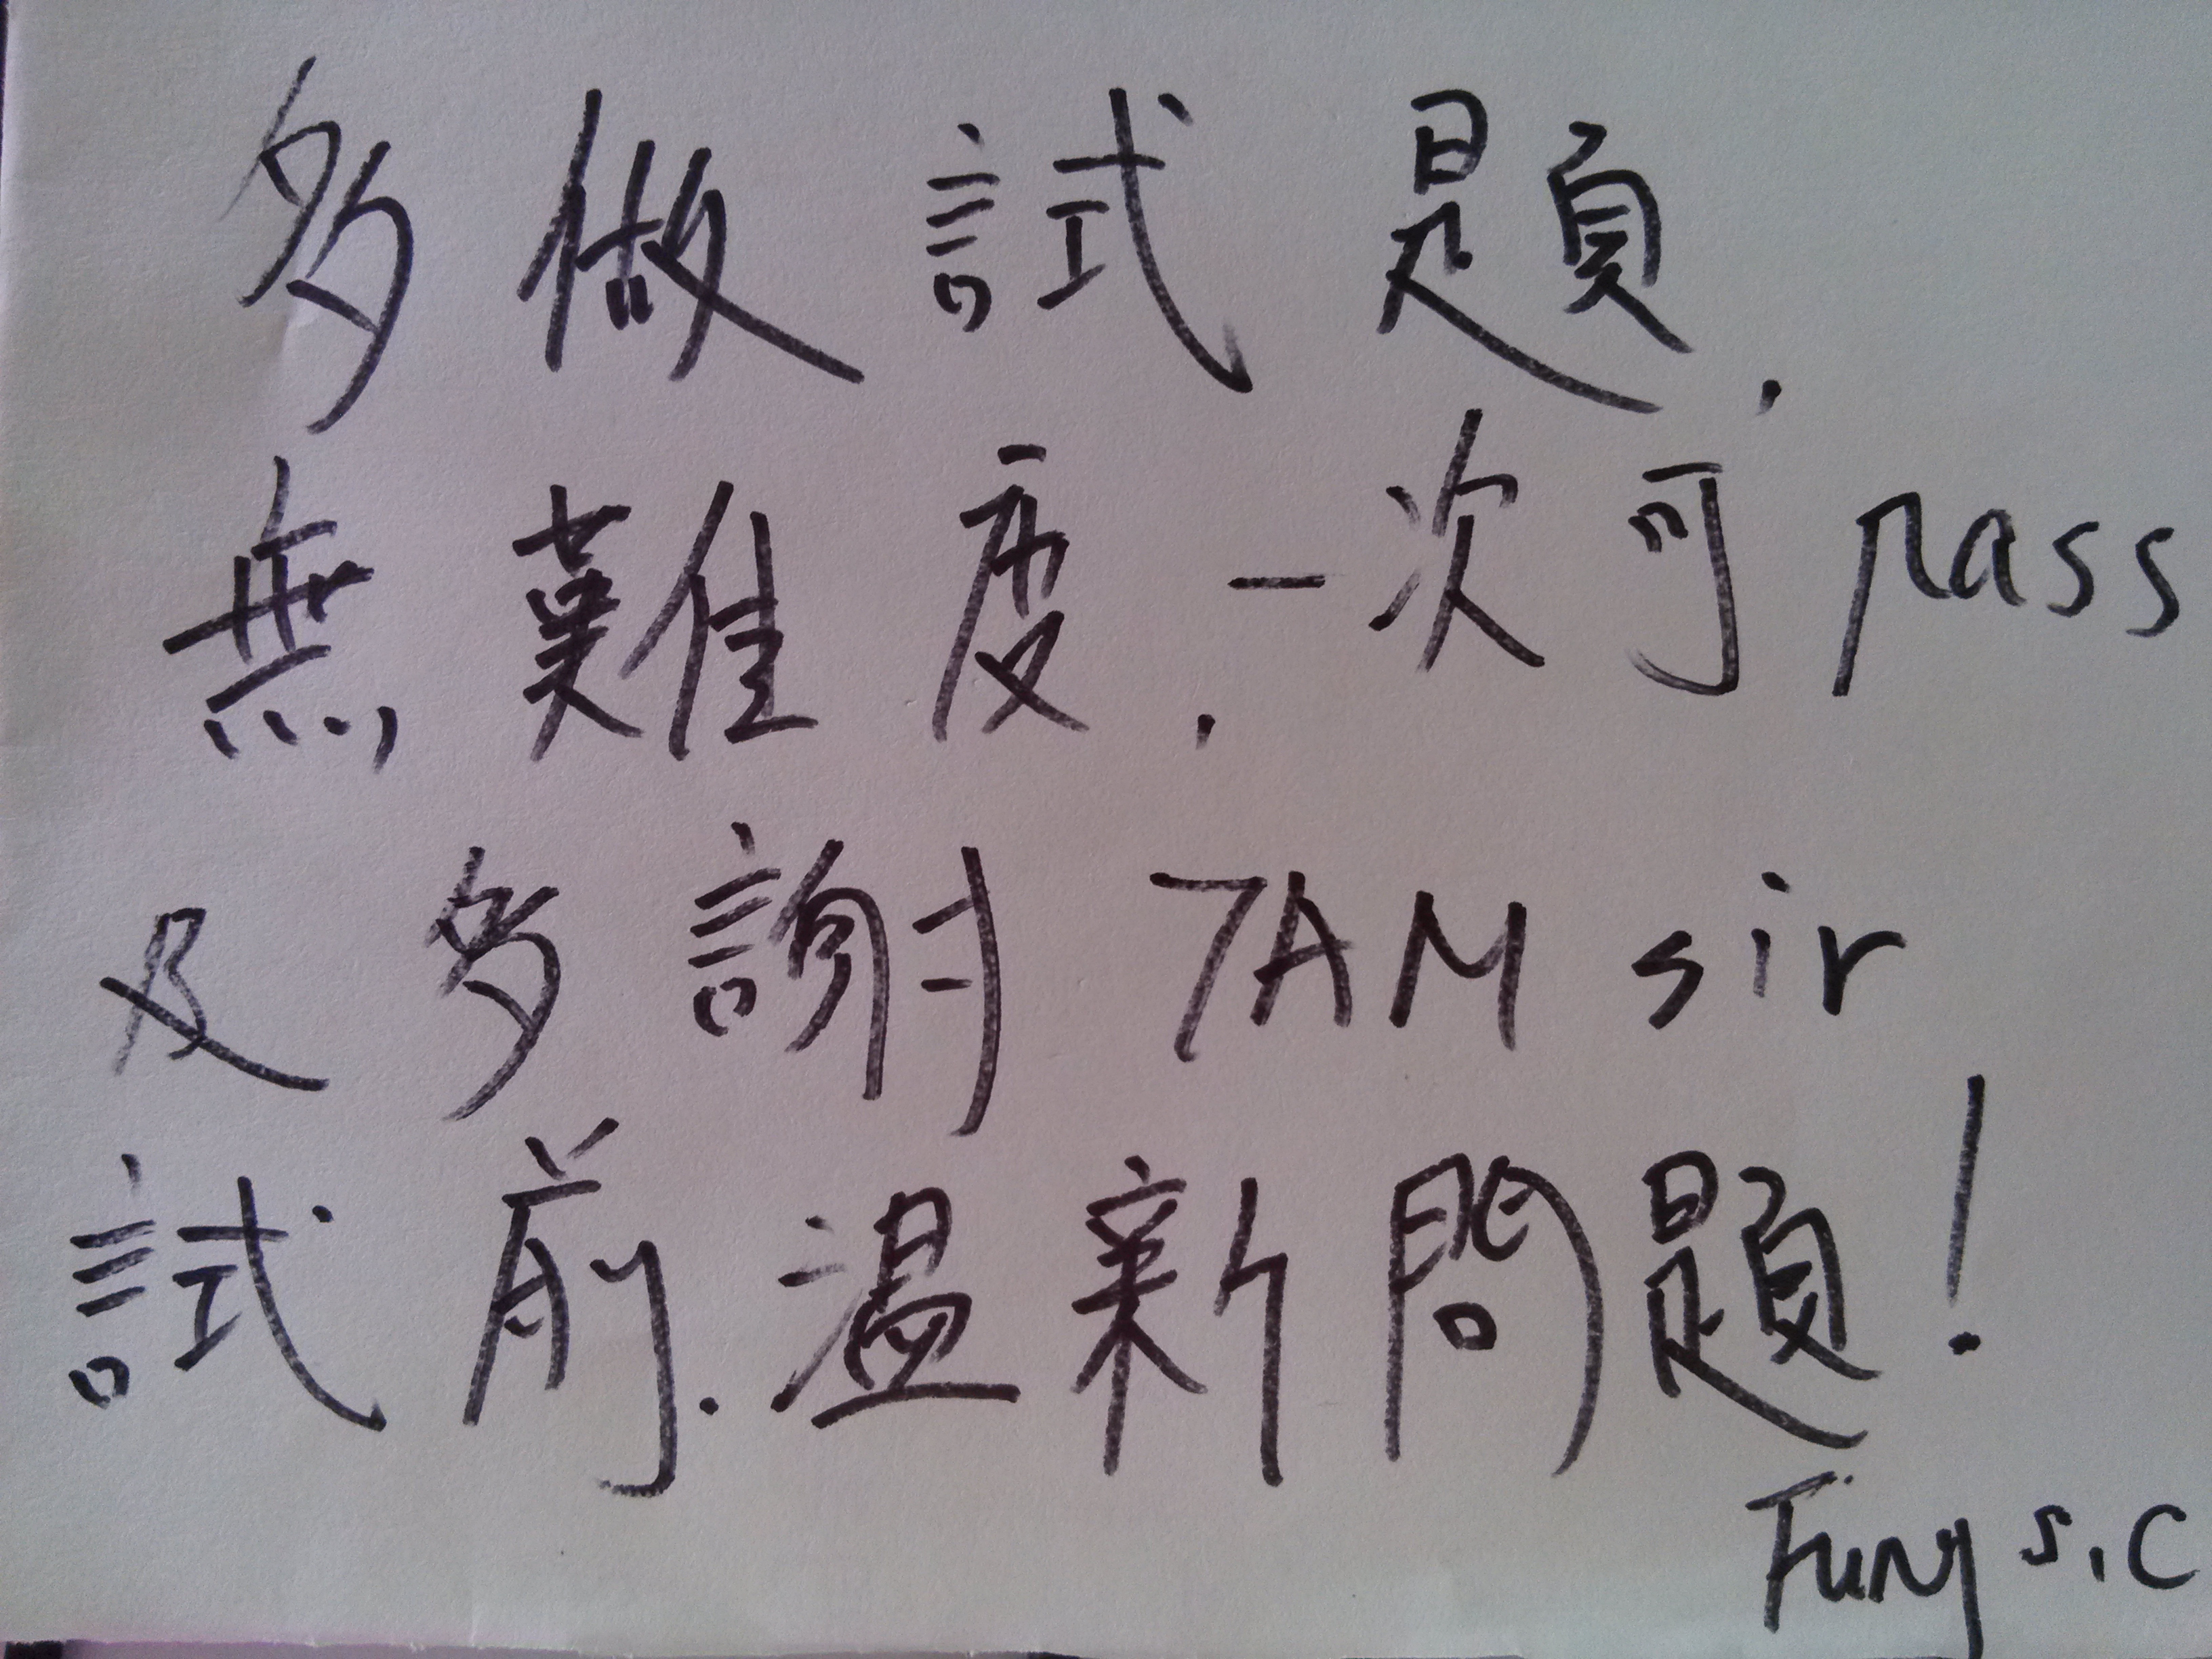 多做試題，
無難度，一次可pass
及多謝TAM sir
試前，溫新問題！
Fung S.C